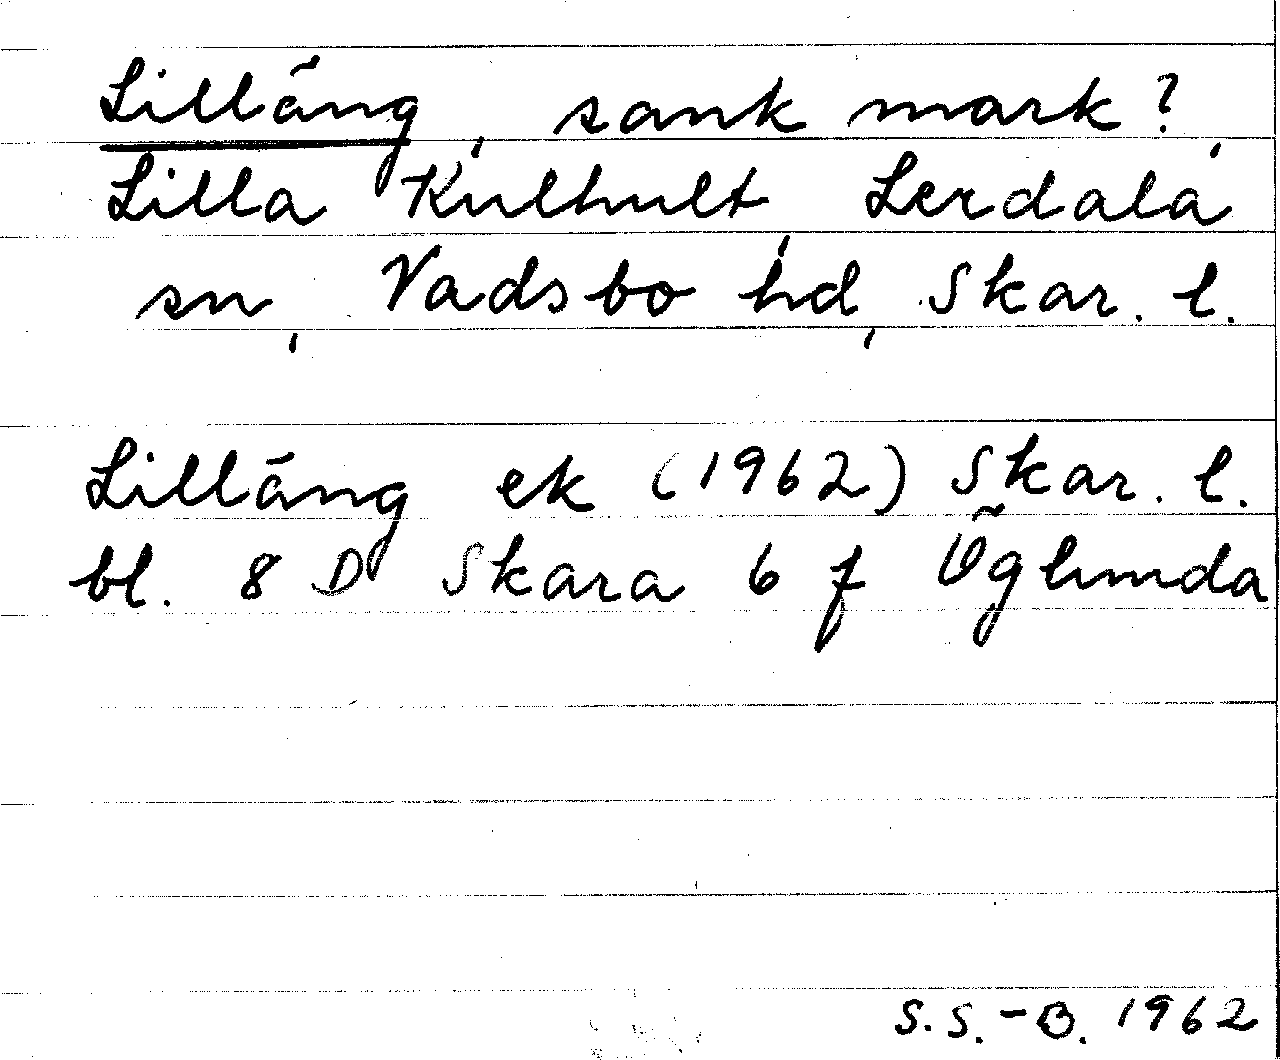 Lilläng, sank mark?,
Lilla Kulhult, Lerdala
sn, Vadsbo hd, Skar. l.
Lilläng ek (1962) Skar. l.
bl. 8 D Skara 6 f Öglunda
S.S.-B. 1962